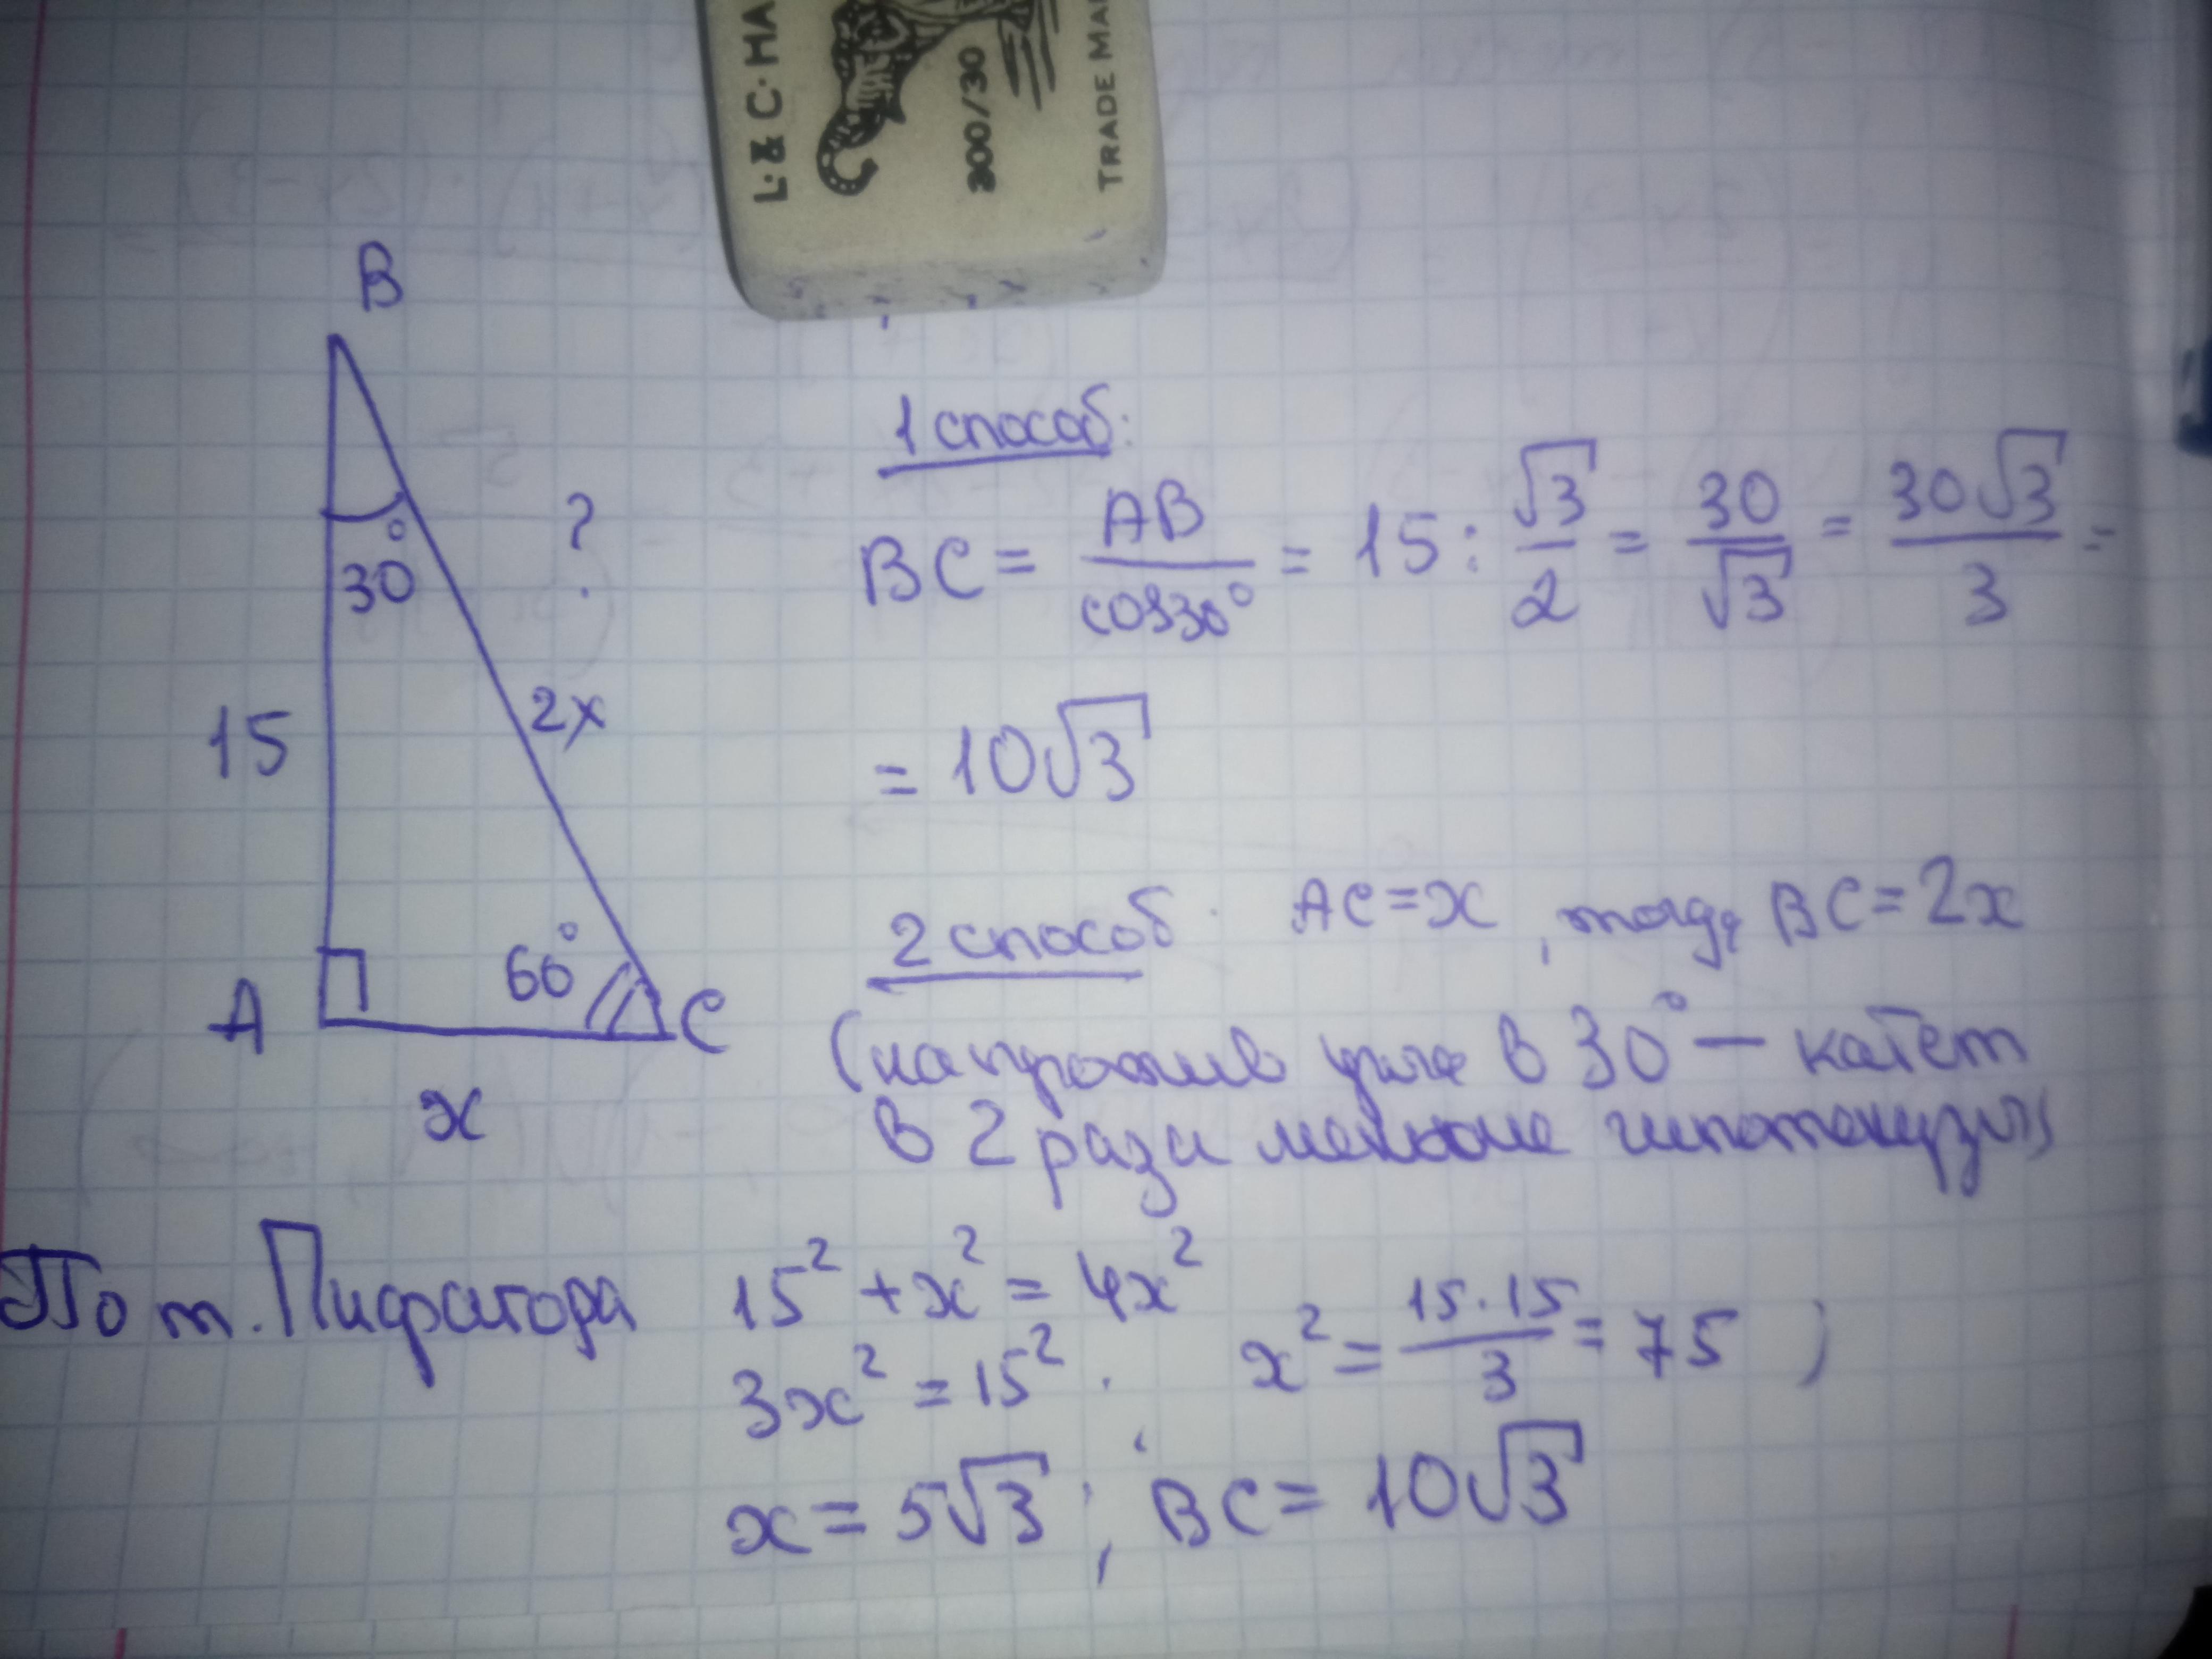 L. & C. HA
300/30
TRADE MAR
B
30°
?
15
2x
A
60°
C
x
1 способ:
BC = AB / cos30° = 15 : √3/2 = 30/√3 = 30√3/3 =
= 10√3
2 способ. AC = x, тогда BC = 2x
(напротив угла в 30° — катет
в 2 раза меньше гипотенузы)
По т. Пифагора 15² + x² = 4x²
3x² = 15²; x² = 15·15/3 = 75;
x = 5√3; BC = 10√3